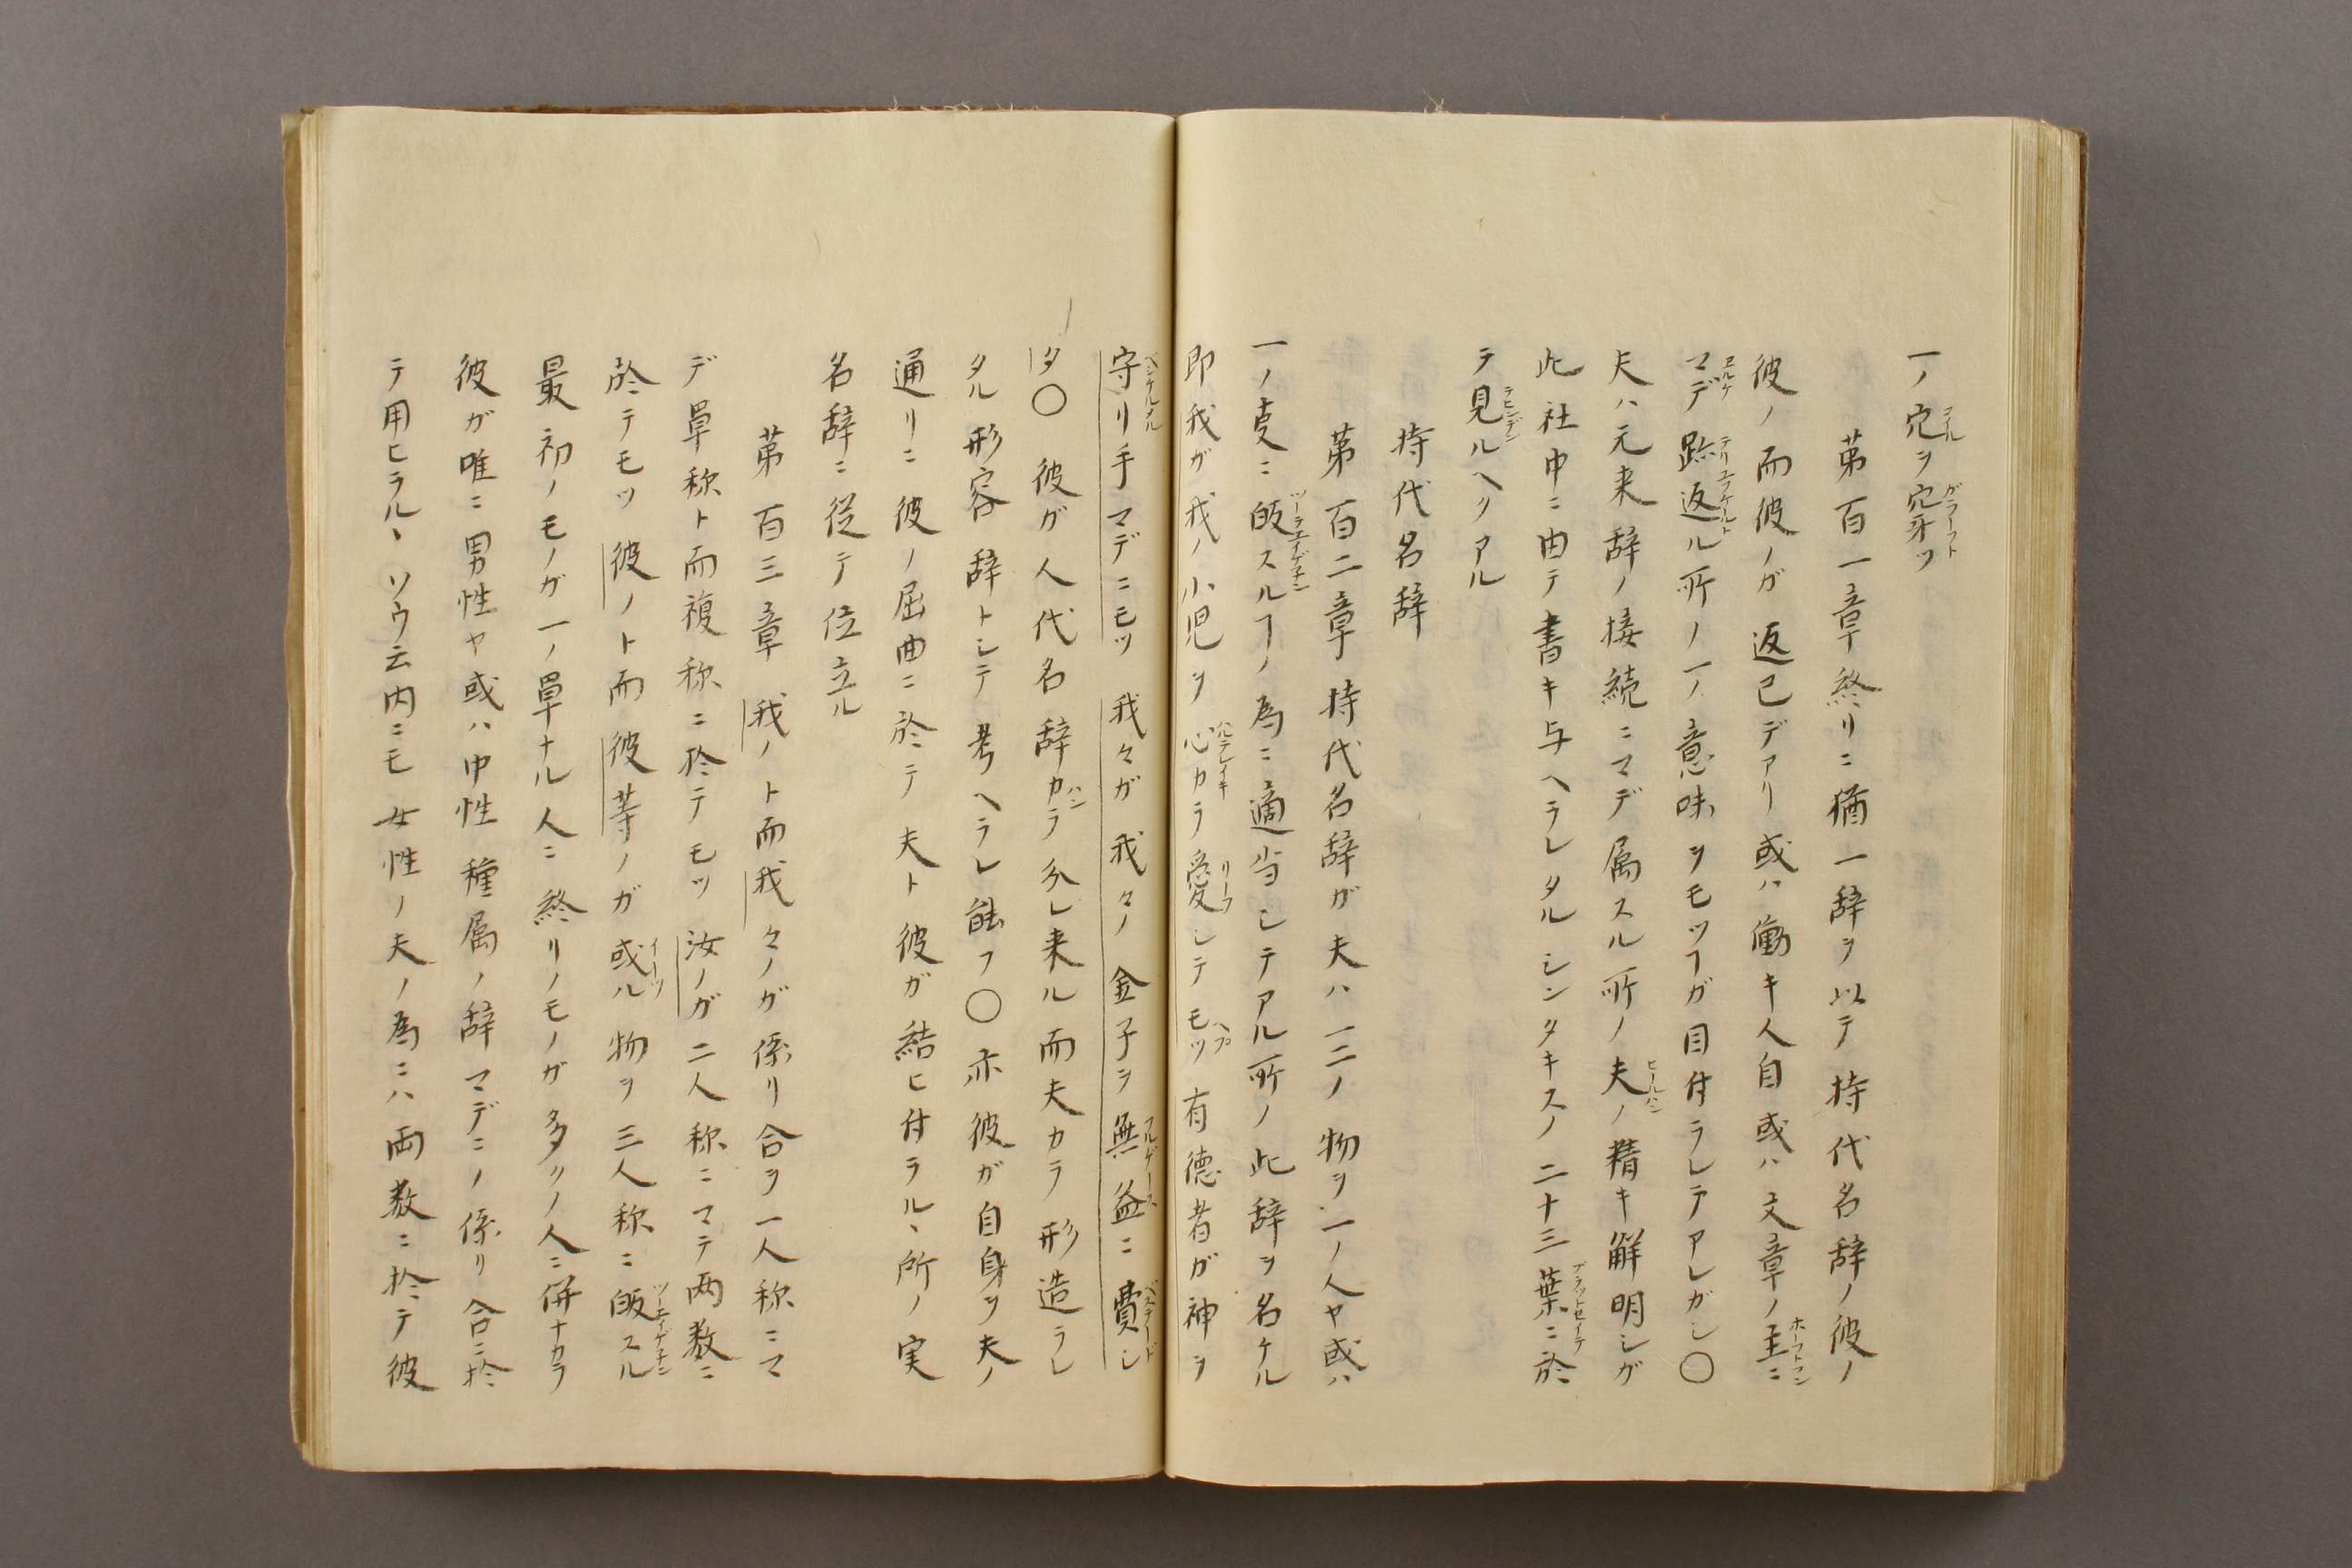 一ノ穴ヲ穿ツ
第百一章終リニ猶一辞ヲ以テ持代名辞ノ彼ノ
彼ノ而彼ノガ返已デアリ或ハ働キ人自或ハ文章ノ主ニ
マデ跡返ル所ノ一ノ意味ヲモツヿガ目付ラレテアレガシ〇
夫ハ元来辞ノ接続ニマデ属スル所ノ夫ノ精キ解明シガ
此社中ニ由テ書キ与ヘラレタルシンタキスノ二十三葉ニ於
テ見ルヘクアル
持代名辞
第百二章持代名辞ガ夫ハ一二ノ物ヲ一ノ人ヤ或ハ
一ノ支ニ皈スルヿノ為ニ適当シテアル所ノ此辞ヲ名ケル
即我ガ我ノ小児ヲ心カラ愛シテモツ有徳者ガ神ヲ
守リ手マデニモツ我々ガ我々ノ金子ヲ無益ニ費シ
タ〇彼ガ人代名辞カラ分レ来ル而夫カラ形造ラレ
タル形容辞トシテ考ヘラレ能フ〇亦彼ガ自身ヲ夫ノ
通リニ彼ノ屈曲ニ於テ夫ト彼ガ結ヒ付ラルヽ所ノ実
名辞ニ従テ位立ル
第百三章我ノト而我々ノガ係リ合ヲ一人称ニマ
デ単称ト而複称ニ於テモツ汝ノガ二人称ニマテ両数ニ
於テモツ彼ノト而彼等ノガ或ル物ヲ三人称ニ皈スル
最初ノモノガ一ノ単ナル人ニ終リノモノガ多クノ人ニ併ナカラ
彼ガ唯ニ男性ヤ或ハ中性種属ノ辞マデニノ係リ合ニ於
テ用ヒラルヽソウ云内ニモ女性ノ夫ノ為ニハ両数ニ於テ彼